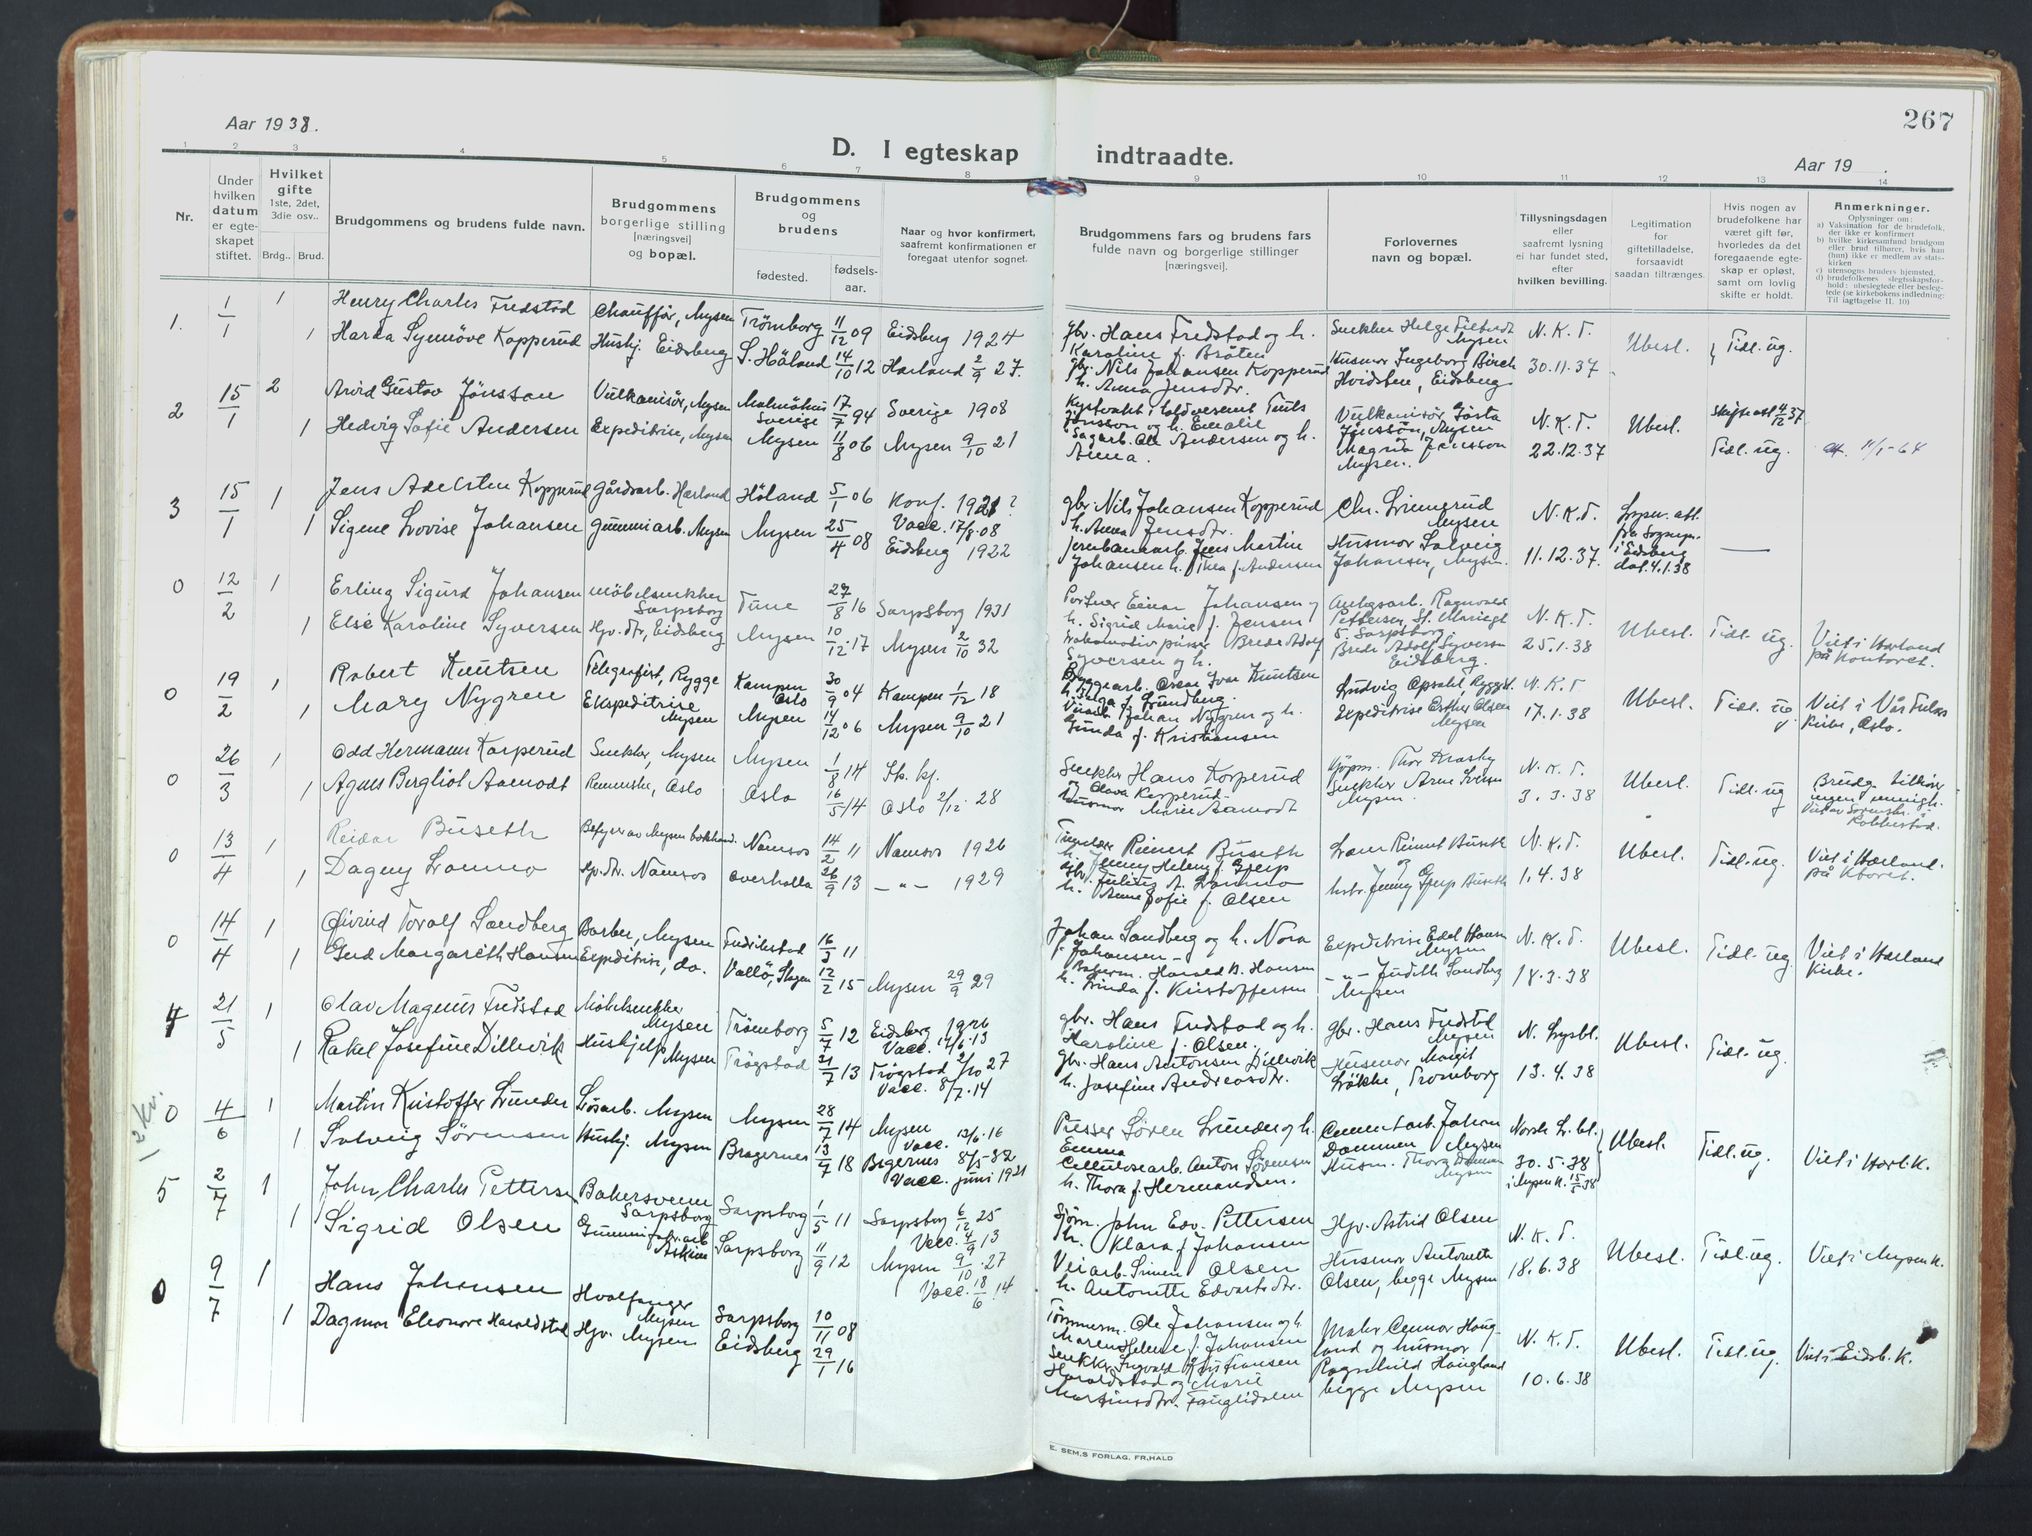 Aar 1938.
D. I egteskap indtraadte.
267
Aar 19 .
1 2 3 4 5 6 7 8 9 10 11 12 13 14
Nr.
Under
hvilken
datum
er egte-
skapet
stiftet.
Hvilket
gifte
1ste, 2det,
3die osv..
Brdg.. Brud.
Brudgommens og brudens fulde navn.
Brudgommens
borgerlige stilling
[næringsvei]
og bopæl.
Brudgommens
og
brudens
fødested.
fødsels-
aar.
Naar og hvor konfirmert,
saafremt konfirmationen er
foregaat utenfor sognet.
Brudgommens fars og brudens fars
fulde navn og borgerlige stillinger
[næringsvei].
Forlovernes
navn og bopæl.
Tillysningsdagen
eller
saafremt lysning
ei har fundet sted,
efter
hvilken bevilling.
Legitimation
for
giftetilladelse,
forsaavidt
saadan tiltrænges.
Hvis nogen av
brudefolkene har
været gift før,
hvorledes da det
foregaaende egte-
skap er opløst,
samt om lovlig
skifte er holdt.
Anmerkninger.
Oplysninger om:
a) Vaksination for de brudefolk,
der ikke er konfirmert
b) hvilke kirkesamfund brudgom
eller brud tilhører, hvis han
(hun) ikke er medlem av stats-
kirken
c) utensogns bruders hjemsted.
d) brudefolkenes slegtskapsfor-
hold: ubeslegtede eller besleg-
tede (se kirkebokens indledning:
Til iagttagelse II. 10)
1. 1/1 1 Henry Charles Fredstad Chauffør, Mysen Trømborg 11/12 09 Eidsberg 1924
1 Harda Synnøve Kopperud Hushj. Eidsberg S. Høland 14/10 12 Hærland 2/9 27.
gbr. Hans Fredstad og h.
Karoline f. Bråten
gbr. Nils Johansen Kopperud
h. Anna Jensdtr.
Snekker Helge
Mysen
Husmor Ingeborg Birch
Hvidsten, Eidsberg
N. K. T.
30.11.37
Ubesl. Tidl. ug.
2 15/1 2 Arvid Gustav Jönsson Vulkanisør, Mysen Malmöhus Sverige 17/7 94 Sverige 1908
1 Hedvig Sofie Andersen Expeditrise, Mysen Mysen 11/8 06 Mysen 9/10 21
Jönsson og h. Emalie
Sagarb. Ole Andersen og h.
Anna.
Vulkanisør Gösta
Jönsson, Mysen
Magna Jensson
Mysen.
N. K. T.
22.12.37
Ubesl. Skifte att 4/12 37
Tidl. ug. 11/1-64
3 15/1 1 Jens Adelsten Kopperud Gårdsarb. Hærland Høland 5/1 06 Konf. 1921?
Vacc. 17/8.08
1 Signe Lovise Johansen Gummiarb. Mysen Mysen 25/4 08 Eidsberg 1922
gbr. Nils Johansen Kopperud
h. Anna Jensdtr.
Jernbanearb. Jens Martin
Johansen h. Thea f. Andersen
Chr. Linnerud
Mysen
Husmor Solveig
Johansen, Mysen.
N. K. T.
11.12.37.
Lysn. att.
fra Sognepr.
i Eidsberg
dat. 4.1.38
—
0 12/2 1 Erling Sigurd Johansen Møbelsnekker Sarpsborg Tune 27/8 16 Sarpsborg 1931
1 Else Karoline Syversen Hjv. dtr, Eidsberg Mysen 10/12 17 Mysen 2/10 32
Portner Einar Johansen og
h. Sigrid Marie f. Jensen
Lokomotiv pusser Brede Adolf
Syversen og h.
Anlegsarb. Ragnvald
Pettersen, St. Mariegt
5, Sarpsborg
Brede Adolf Syversen
Eidsberg.
N. K. T.
25.1.38
Ubesl. Tidl. ug. Viet i Hærland
på kontoret.
0 19/2 1 Robert Knutsen Telegrafist, Rygge Kampen Oslo 30/9 04 Kampen 1/12 18
1 Mary Nygren Ekspeditrise Mysen Mysen 14/12 06 Mysen 9/10 21
Byggearb. Oscar Ivar Knutsen
h. Inga f. Lundberg.
Johan Nygren og h.
Gunda f. Kristiansen
Ludvig Opsahl, Rygge
Expeditrise Esther Olsen
Mysen
N. K. T.
17.1.38
Ubesl. Tidl. ug Viet i Vår Frelsers
kirke, Oslo.
0 26/3 1 Odd Hermann Korperud Snekker, Mysen Mysen 1/8 14 St. kf.
1 Agnes Bergliot Aamodt Renneske, Oslo Oslo 16/5 14 Oslo 2/12 28
Snekker Hans Korperud
og Olava Korperud
Husmor Marie Aamodt
Kjøpm. Thor Kraaby
Snekker Arne Svensen
Mysen.
N. K. T.
3.3.38
Ubesl. Tidl. ug Brudg. tilhører
ingen menigh.
Robbestad.
0 13/4 1 Reidar Buseth Bestyrer av Mysen bokhand. Namsos 14/2 11 Namsos 1926
1 Dagny Lonmo Hjv. dtr. Namsos Overhalla 26/9 13 —"— 1929
Reinert Buseth
h. Jenny Helene f. Gjerp
Gbr. Julius A. Lonmo
h. Anne Sofie f. Olsen
Reinert Buseth
og
hstr. Jenny Gjerp Buseth
N. K. T.
1.4.38
Ubesl. Tidl. ug. Viet i Hærland
på Kboret.
0 14/4 1 Øivind Toralf Sandberg Barber, Mysen Fredrikstad 16/3 11
1 Gerd Margareth Hansen Expeditrise, do. Vallø, Slagen 12/2 15 Mysen 29/9 29
Johan Sandberg og h. Nora
f. Johansen
Bakerm. Harald B. Hansen
h. Linda f. Kristoffersen
Expeditrise Edel Hansen
Mysen
—"— Judith Sandberg
Mysen
N. K. T.
18.3.38
Ubesl. Tidl. ug Viet i Hærland
kirke.
4 21/5 1 Olav Magnus Fredstad Møbelsnekker Mysen Trømborg 5/7 12 Eidsberg 1926
Vacc. 17/6.13
1 Rakel Josefine Dillevik Hushjelp Mysen Trøgstad 21/7 13 Trøgstad 2/10 27
Vacc. 8/7.14
gbr. Hans Fredstad og h.
Karoline f. Olsen.
gbr. Hans Antonsen Dillevik
h. Josefine Andreasdtr.
gbr. Hans Fredstad
Mysen
Husmor Margit
Løkke, Trømborg
N. Lysbl.
13.4.38
Ubesl. Tidl. ug.
1 2 kv.
0 4/6 1 Martin Kristoffer Lunder Løsarb. Mysen Mysen 28/7 14 Mysen
Vacc. 13/6.16
1 Solveig Sørensen Hushj. Mysen Bragernes 13/7 18 Bragernes
Vacc. juni 1921
Presser Søren Lunder og h.
Emma
Cellulosearb. Anton Sørensen
h. Thora f. Hermansen.
Cementarb. Johan
Dammen Mysen
Husm. Thora Dammen
Mysen
Norsk L. bl.
30.5.38
i Mysen K. 15/5 38
Ubesl. Tidl. ug. Viet i Hærl. K.
5 2/7 1 John Charles Pettersen Bakersvenn Sarpsborg Sarpsborg 1/5 11 Sarpsborg 6/12 25
Vacc. 4/9 13
1 Sigrid Olsen Gummifabr. arb Askim Sarpsborg 11/9 12 Mysen 9/10.27
Vacc. 18/6.14
Sjøm. John Edv. Pettersen
h. Klara f. Johansen
Veiarb. Simen Olsen
h. Antonette Edvartsdtr.
Hjv. Astrid Olsen
Husmor Antonette
Olsen, begge Mysen
N. K. T.
18.6.38
Ubesl. Tidl. ug. Viet i Mysen K.
0 9/7 1 Hans Johansen Hvalfanger Mysen Sarpsborg 10/11 08
1 Dagmar Eleonore Haraldstad Hjv. Mysen Eidsberg 29/1 16
Tømmerm. Ole Johansen og h.
Maren Helene f. Johansen
Snekker Ingvald Kristiansen
Haraldstad og Marie
Martinsdtr. Fuglidalen
Maler Connor Haug-
land og husmor
Ragnhild Haugland
begge Mysen
N. K. T.
10.6.38
Ubesl. Tidl. ug. Viet i Eidsb. K.
E. SEM.S FORLAG. FR.HALD